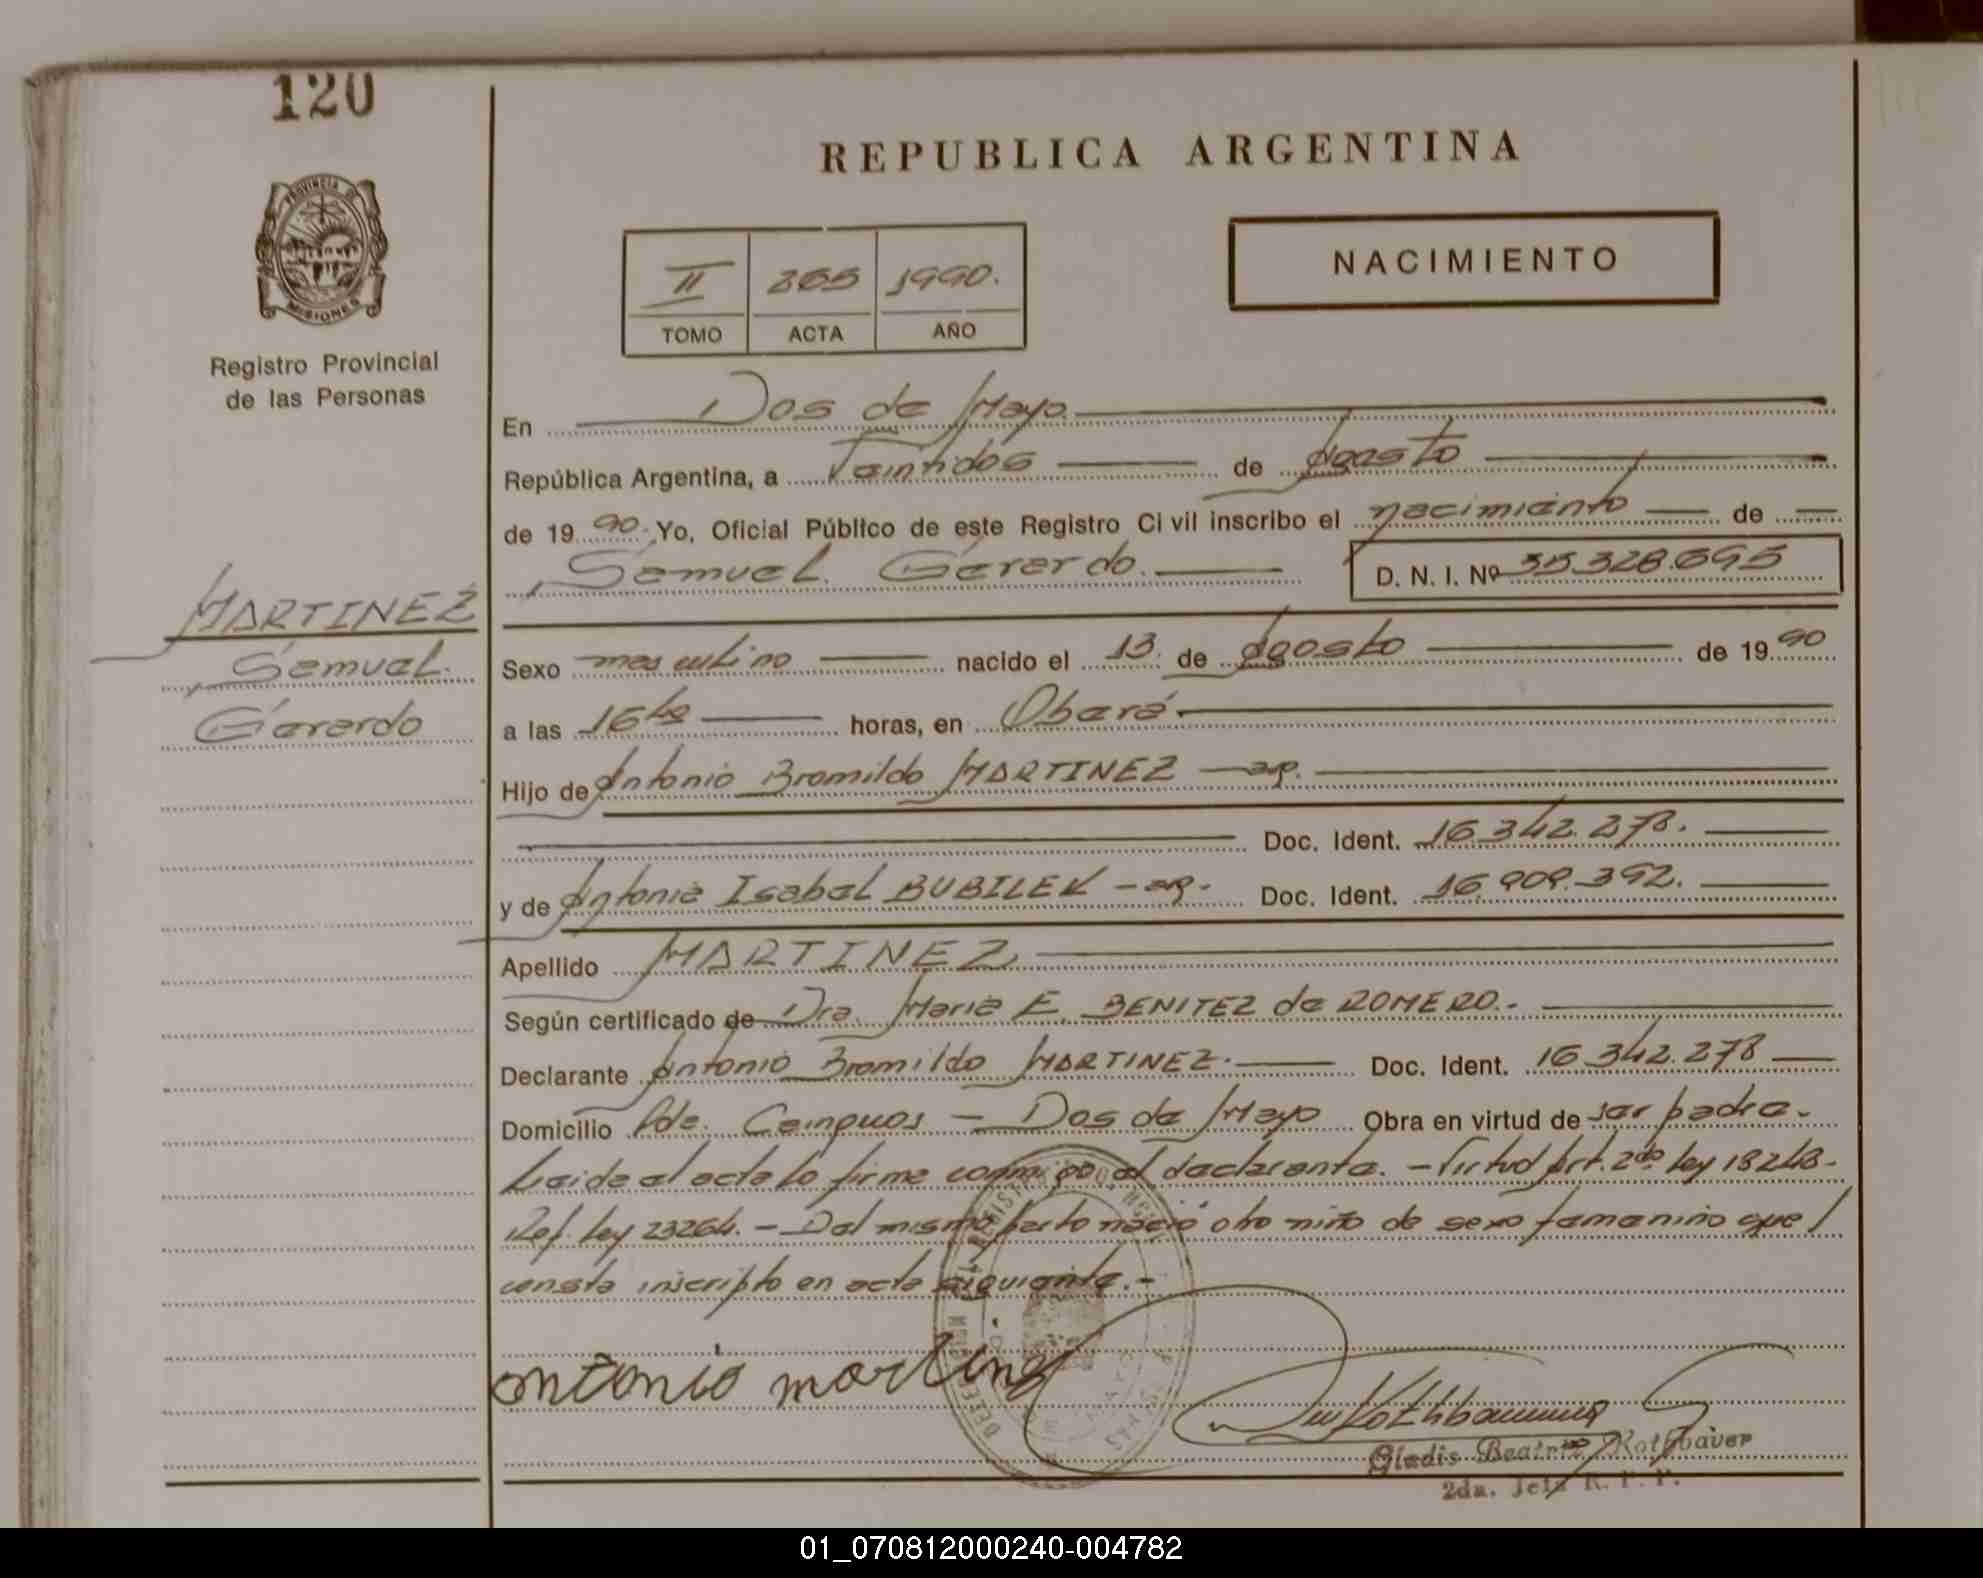 120
REPUBLICA ARGENTINA
PROVINCIA DE
MISIONES
Registro Provincial
de las Personas
II 265 1990.
TOMO ACTA AÑO
NACIMIENTO
En Dos de Mayo
República Argentina, a Veintidos de Agosto
de 1990. Yo, Oficial Público de este Registro Civil inscribo el nacimiento de
Samuel Gerardo. D. N. I. Nº 35.328.695
MARTINEZ
Samuel
Gerardo
Sexo masculino nacido el 13 de Agosto de 1990
a las 16hs horas, en Oberá
Hijo de Antonio Bromildo MARTINEZ - ap.
Doc. Ident. 16.342.278.
y de Antonia Isabel BUBILEK - ap. Doc. Ident. 16.909.392.
Apellido MARTINEZ
Según certificado de Dra. Maria E. BENITEZ de ROMERO.-
Declarante Antonio Bromildo MARTINEZ. Doc. Ident. 16.342.278
Domicilio Pde. Cainguas - Dos de Mayo Obra en virtud de ser padre.
Leida el acta lo firma conmigo el declarante. - Virtud Art. 2do Ley 18248-
Ref. Ley 23264. - Del mismo parto nació otro niño de sexo femenino que
consta inscripto en acta siguiente.-
antonio martinez
Gladis Beatriz Rothbaver
2da. Jefa R. P. P.
01_070812000240-004782